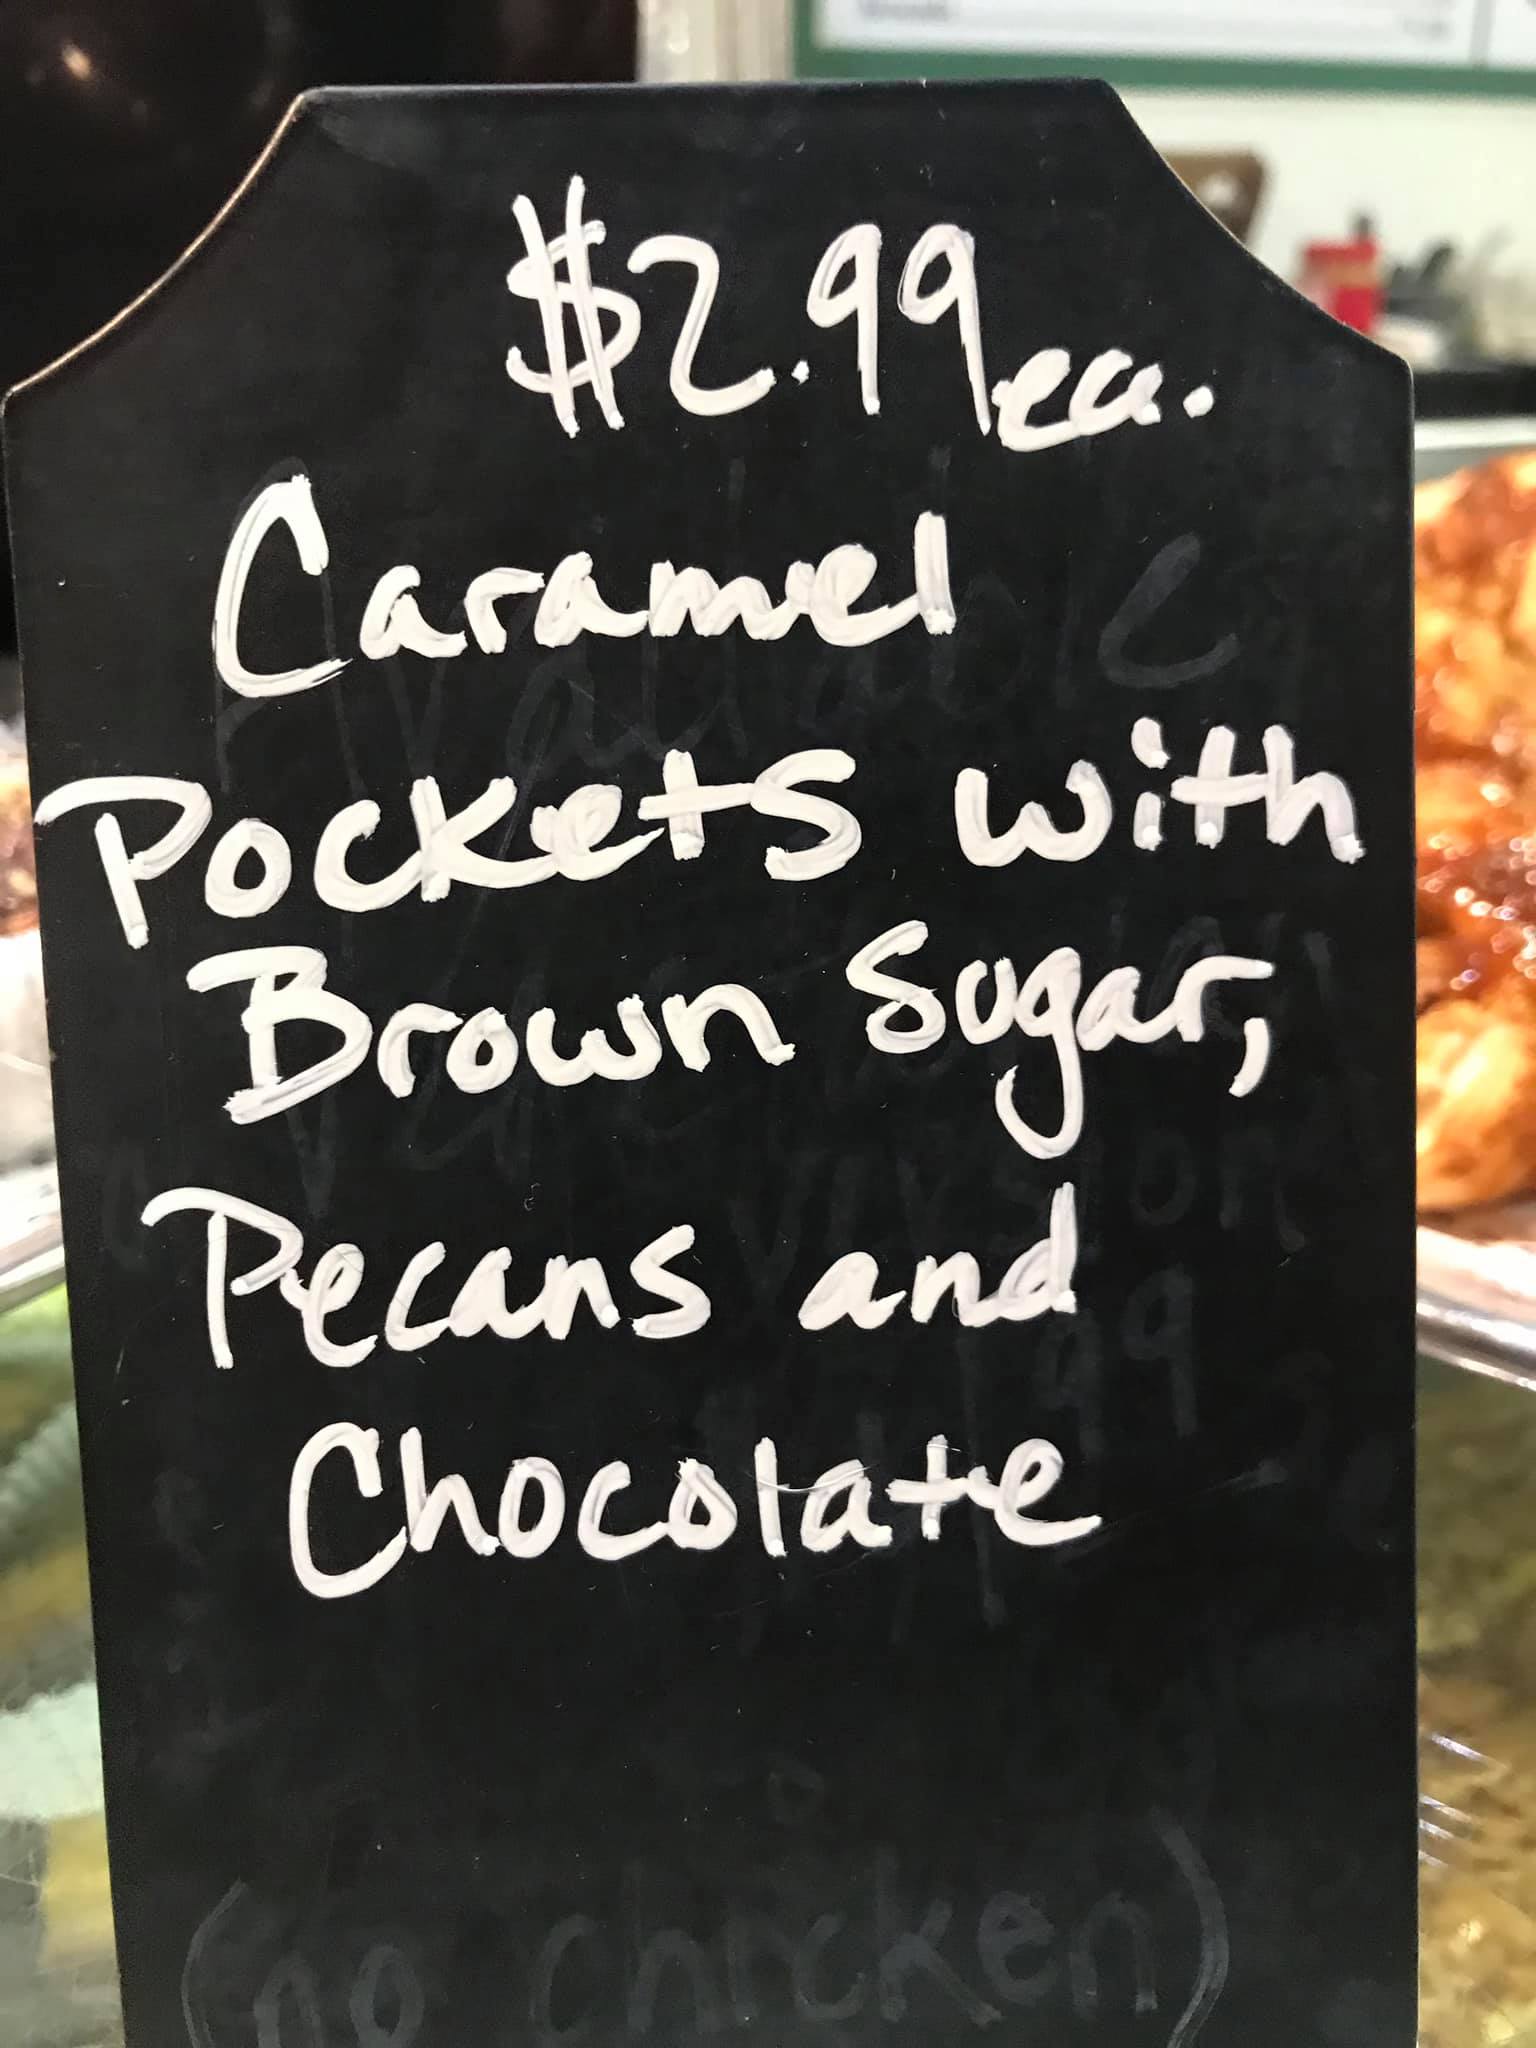 $2.99 ea.
Caramel
Pockets with
Brown Sugar,
Pecans and
Chocolate
(no chicken)